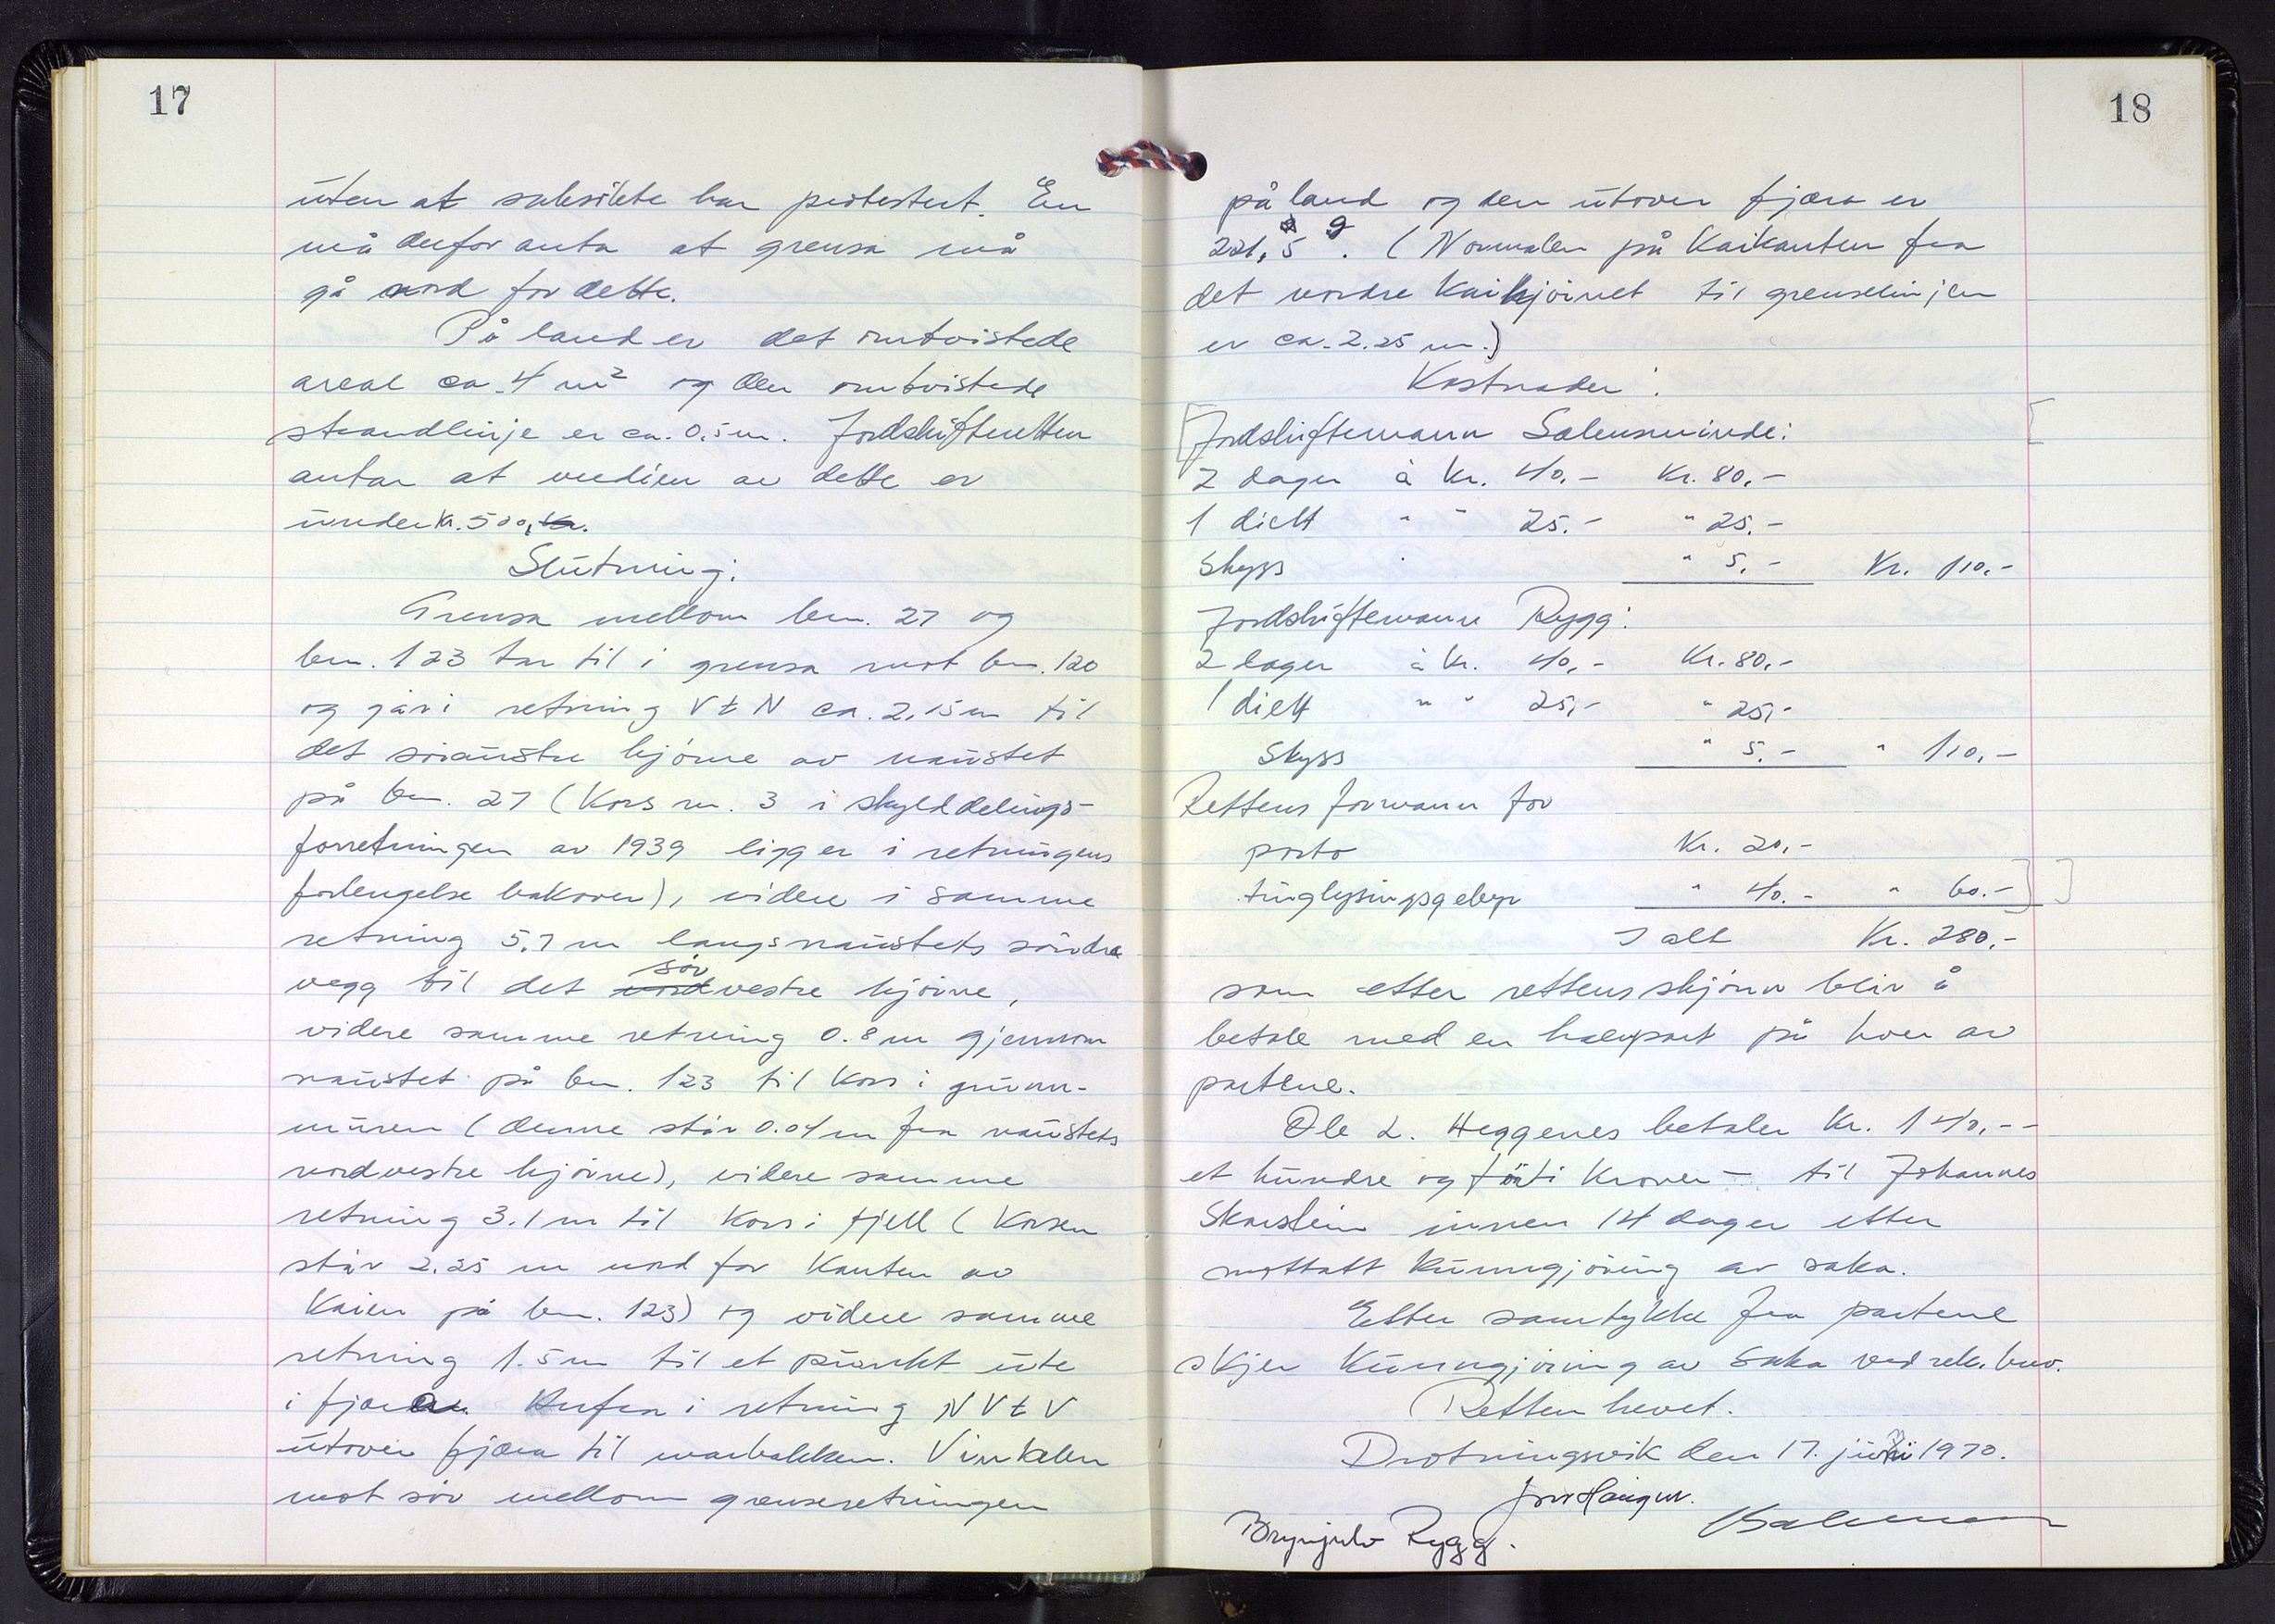 17
uten at saksökte har protestert. En
må derfor anta at grensa må
gå nord for dette.
På land er det omtvistede
areal ca. 4 m² og den omtvistede
strandlinje er ca. 0,5 m. Jordskifteretten
antar at verdien av dette er
under kr. 500,- kr.
Slutning:
Grensa mellom bnr. 27 og
bnr. 123 tar til i grensa mot bnr. 120
og går i retning V t N ca. 2,15 m til
det söraustre hjörne av naustet
på bnr. 27 (Kors nr. 3 i skylddelings-
forretningen av 1939 ligger i retningens
forlengelse bakover), videre i samme
retning 5.7 m langs naustets söndre
vegg til det nord sör vestre hjörne,
videre samme retning 0.8 m gjennom
naustet på bnr. 123 til kors i grunn-
muren (denne står 0.04 m fra naustets
nordvestre hjörne), videre samme
retning 3.1 m til kors i fjell (Korsen
står 2.25 m nord for kanten av
kaien på bnr. 123) og videre samme
retning 1.5 m til et punkt ute
i fjæra. Herfra i retning NV t V
utover fjæra til marbakken. Vinkelen
mot sör mellom grenseretningen
18
på land og den utover fjæra er
221,5 g. (Normalen på kaikanten fra
det nordre kaihjörnet til grenselinjen
er ca. 2.25 m.)
Kostnader:
Jordskiftemann Salensminde:
2 dager à kr. 40,- kr. 80,-
1 diett " " 25.- " 25.-
Skyss " 5,- Kr. 110,-
Jordskiftemann Rygg:
2 dager à kr. 40,- Kr. 80,-
1 diett " " 25,- " 25,-
Skyss " 5,- " 110,-
Rettens formann for
porto Kr. 20,-
tinglysingsgebyr " 40.- " 60.-
I alt Kr. 280,-
som etter rettens skjönn blir å
betale med en halvpart på hver av
partene.
Ole L. Heggenes betaler kr. 140,--
et hundre og förti kroner - til Johannes
Skarstein innen 14 dager etter
mottatt kunngjöring av saka.
Etter samtykke fra partene
skjer kunngjöring av saka ved rek. brev.
Retten hevet.
Drotningsvik den 17. juni 1970.
Brynjulv Rygg.